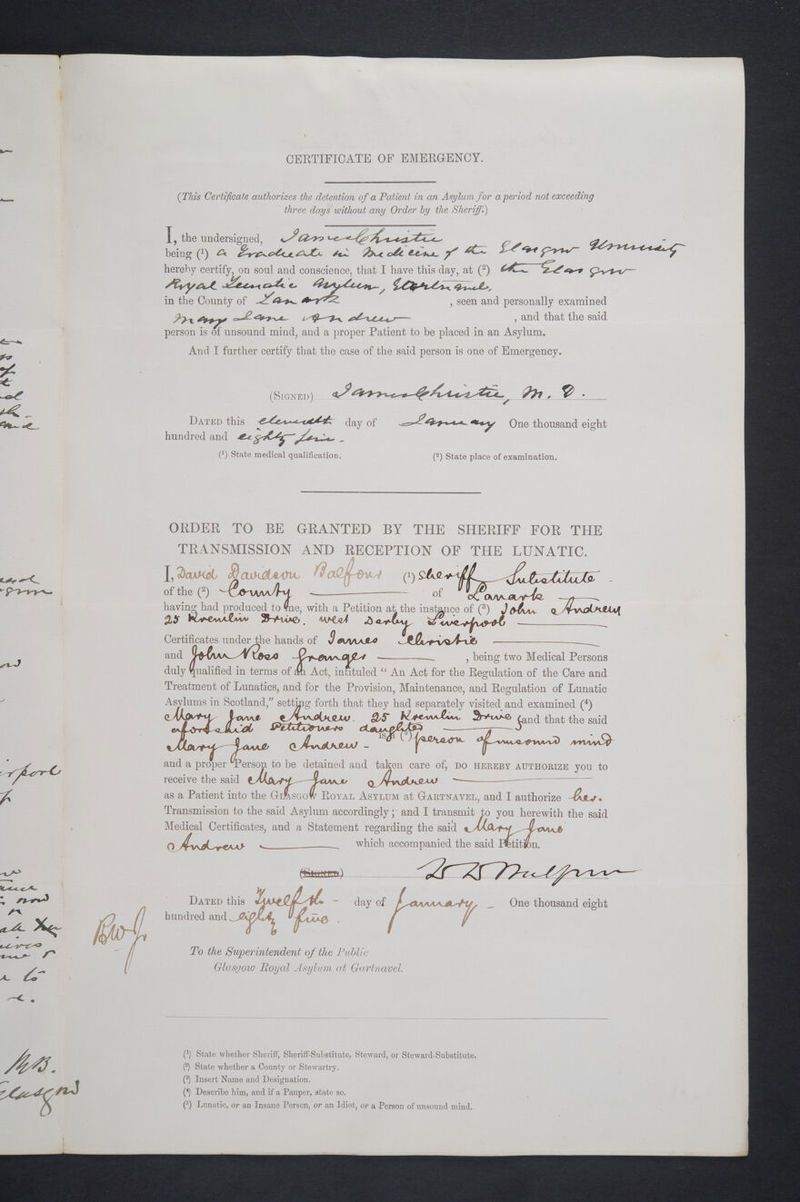 CERTIFICATE OF EMERGENCY.
(This Certificate authorizes the detention of a Patient in an Asylum for a period not exceeding
three days without any Order by the Sheriff.)
I, the undersigned, James Christie
being (¹) a Graduate in Medicine of the Glasgow University
hereby certify, on soul and conscience, that I have this day, at (²) the Glasgow
Royal Lunatic Asylum, Gartnavel,
in the County of Lanark , seen and personally examined
Mary Jane Andrew , and that the said
person is of unsound mind, and a proper Patient to be placed in an Asylum.
And I further certify that the case of the said person is one of Emergency.
(SIGNED) James Christie, M. D.
DATED this eleventh day of January One thousand eight
hundred and eighty five -
(¹) State medical qualification. (²) State place of examination.
ORDER TO BE GRANTED BY THE SHERIFF FOR THE
TRANSMISSION AND RECEPTION OF THE LUNATIC.
I, David Davidson Balfour (¹) Sheriff Substitute -
of the (²) County of Lanark
having had produced to me, with a Petition at the instance of (³) John Andrew
25 Kremlin Drive, West Derby Liverpool
Certificates under the hands of James Christie
and John Ross Granger , being two Medical Persons
duly qualified in terms of an Act, intituled “ An Act for the Regulation of the Care and
Treatment of Lunatics, and for the Provision, Maintenance, and Regulation of Lunatic
Asylums in Scotland,” setting forth that they had separately visited and examined (⁴)
Mary Jane Andrew. 25 Kremlin Drive and that the said
aforesaid Petitioners daughter
Mary Jane Andrew - is a (⁵) person of unsound mind
and a proper Person to be detained and taken care of, DO HEREBY AUTHORIZE you to
receive the said Mary Jane Andrew
as a Patient into the GLASGOW ROYAL ASYLUM at GARTNAVEL, and I authorize her.
Transmission to the said Asylum accordingly; and I transmit to you herewith the said
Medical Certificates, and a Statement regarding the said Mary Jane
Andrew which accompanied the said Petition.
(SIGNED) D D Balfour
DATED this Twelfth - day of January - One thousand eight
hundred and eighty five.
To the Superintendent of the Public
Glasgow Royal Asylum at Gartnavel.
(¹) State whether Sheriff, Sheriff-Substitute, Steward, or Steward-Substitute.
(²) State whether a County or Stewartry.
(³) Insert Name and Designation.
(⁴) Describe him, and if a Pauper, state so.
(⁵) Lunatic, or an Insane Person, or an Idiot, or a Person of unsound mind.